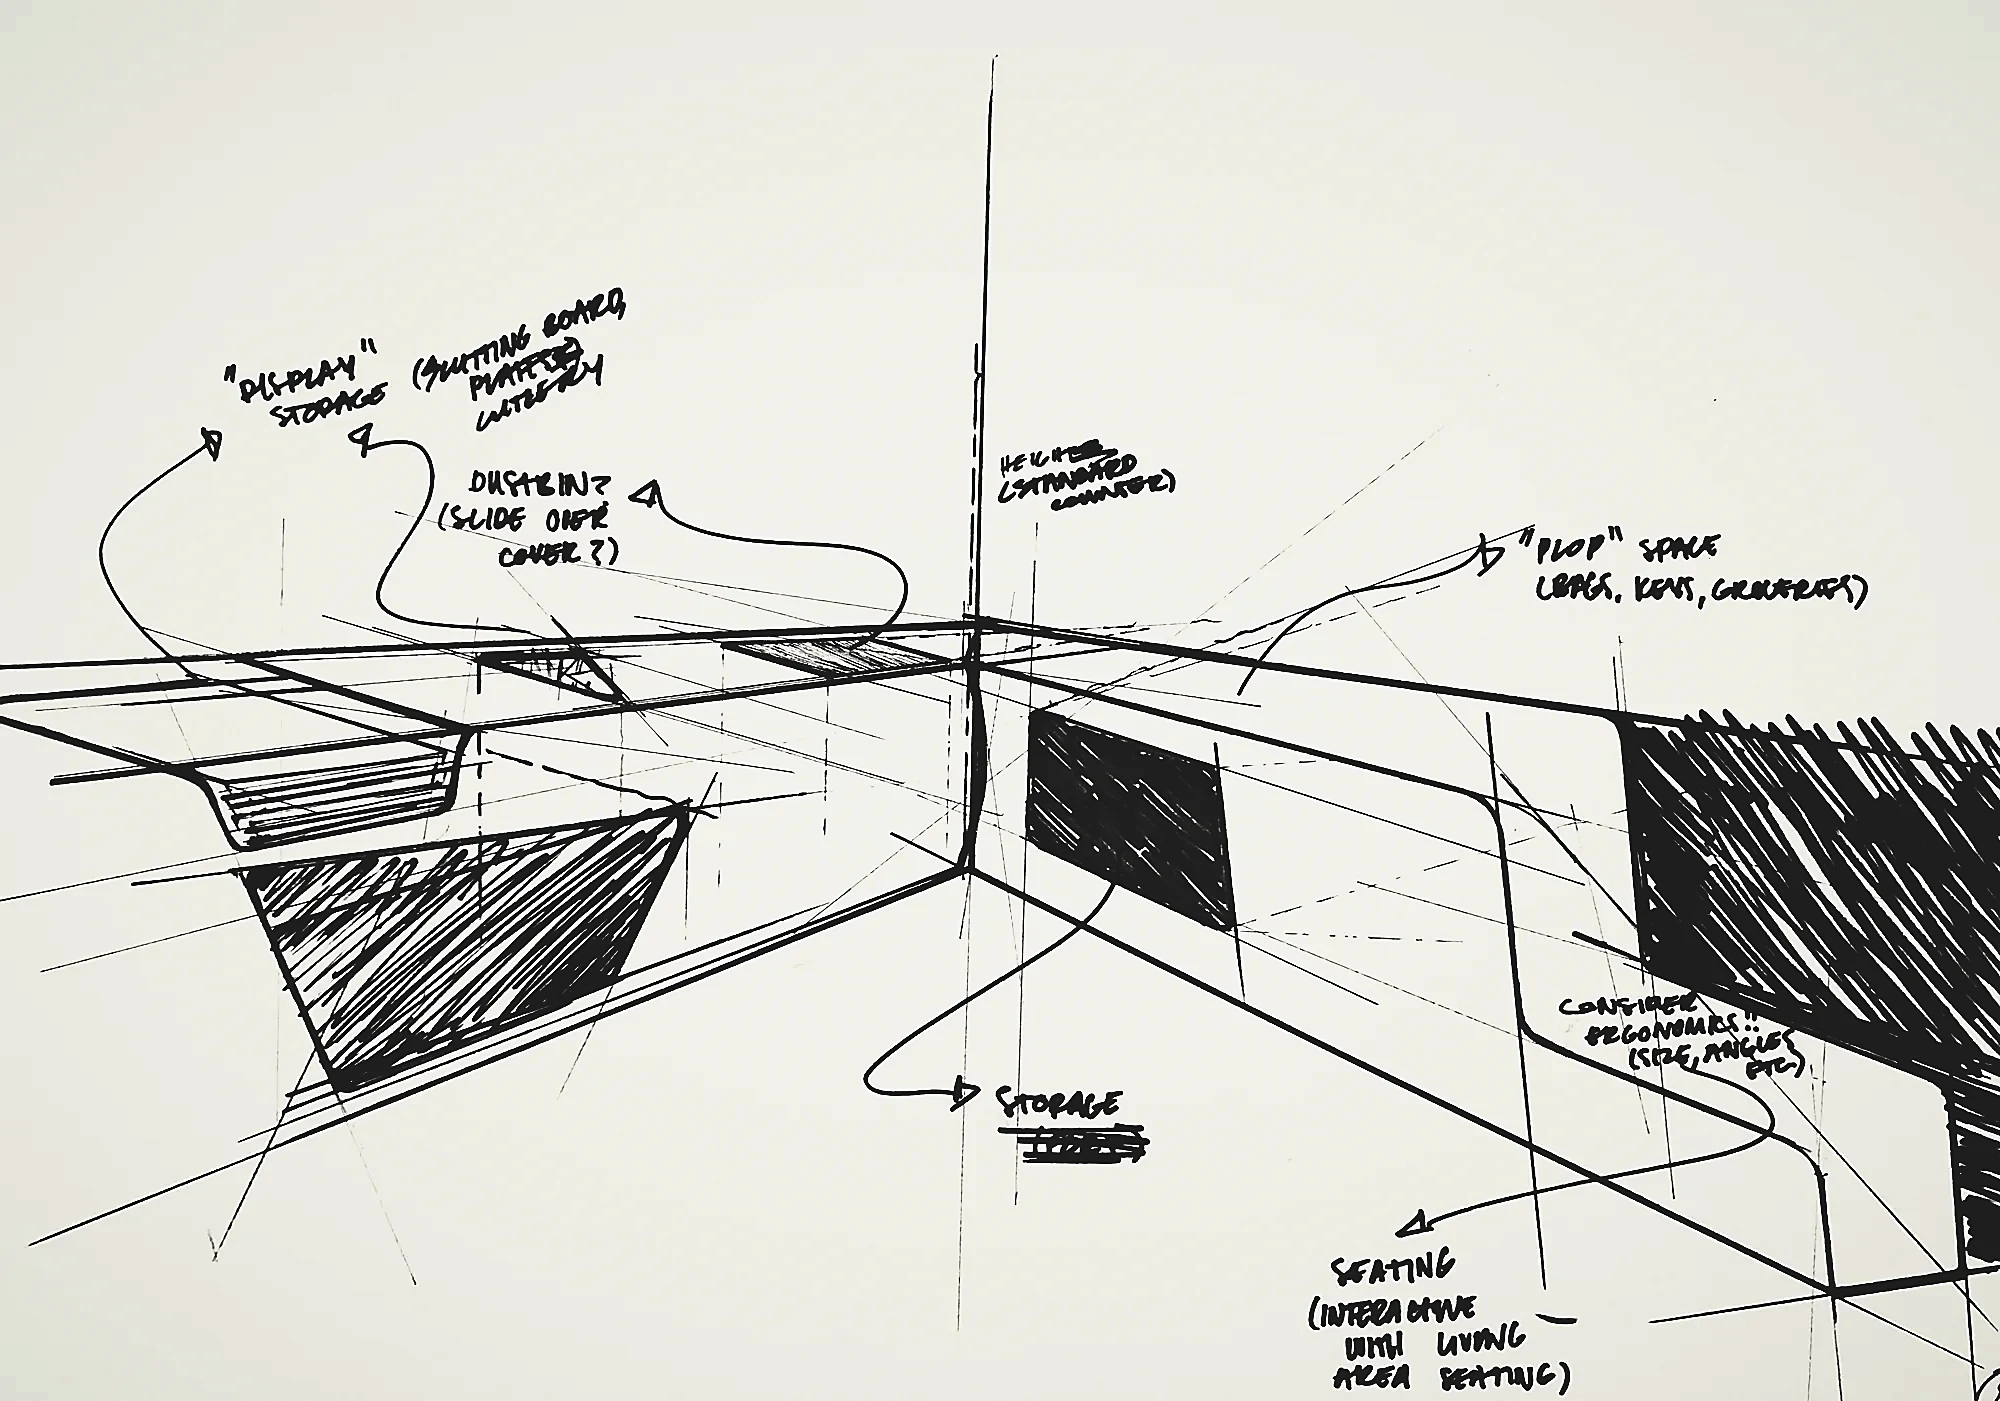 "DISPLAY"
STORAGE
(CUTTING BOARD,
PLATES
CUTLERY
DUSTBIN?
(SLIDE OVER
COVER?)
HEIGHT
(STANDARD
COUNTER)
"PLOP" SPACE
(BAGS, KEYS, GROCERIES)
CONSIDER
ERGONOMICS!!
(SIZE, ANGLES
ETC)
STORAGE
SEATING
(INTERACTIVE
WITH LIVING
AREA SEATING)